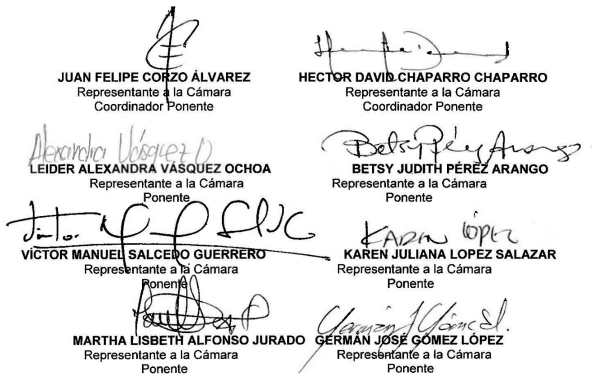 JUAN FELIPE CORZO ÁLVAREZ
Representante a la Cámara
Coordinador Ponente
HECTOR DAVID CHAPARRO CHAPARRO
Representante a la Cámara
Coordinador Ponente
Alexandra Vásquez O
LEIDER ALEXANDRA VÁSQUEZ OCHOA
Representante a la Cámara
Ponente
Betsy Pérez Arango
BETSY JUDITH PÉREZ ARANGO
Representante a la Cámara
Ponente
VÍCTOR MANUEL SALCEDO GUERRERO
Representante a la Cámara
Ponente
KAREN LÓPEZ
KAREN JULIANA LOPEZ SALAZAR
Representante a la Cámara
Ponente
MARTHA LISBETH ALFONSO JURADO
Representante a la Cámara
Ponente
GERMÁN JOSÉ GÓMEZ LÓPEZ
Representante a la Cámara
Ponente